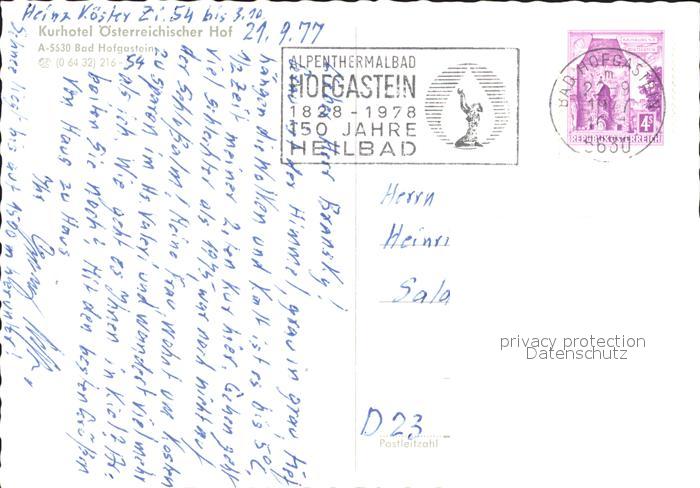 Heinz Köster Zi. 54 bis 3.10.
Kurhotel Österreichischer Hof
21.9.77
A-5630 Bad Hofgastein
☏ (0 64 32) 216 - 54
ALPENTHERMALBAD
HOFGASTEIN
1828 - 1978
150 JAHRE
HEILBAD
BAD HOFGASTEIN
5630
4S
REPUBLIK ÖSTERREICH
Herr
hängen die Wolken und kalt ist es bis 5°C
1/2 Zeit meiner 2. ten Kur hier. Gehen geht
viel schlechter als 1975 war noch nicht auf
der Schloßalm! Meine Frau wohnt um Kosten
zu sparen im Hs Valeri und wandert viel mehr
als ich. Wie geht es Ihnen in Kiel?
Sie noch? Mit den besten Grüßen
von Haus zu Haus
Ihr
Schnee liegt bis auf 1500 m herunter!
Herrn
Heinri
Sala
privacy protection
Datenschutz
D 23
Postleitzahl